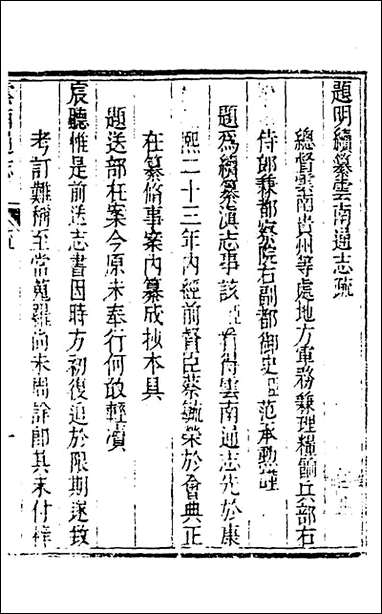 題明續纂雲南通志疏
總督雲南貴州等處地方軍務兼理糧餉兵部右
侍郎兼都察院右副都御史臣范承勳謹
題爲續纂滇志事該臣看得雲南通志先於康
熙二十三年內經前督臣蔡毓榮於會典正
在纂脩事案內纂成抄本具
題送部在案今原未奉行何敢輕瀆
宸聽惟是前送志書因時方初復追於限期遂致
考訂難稱至當蒐羅尚未周詳卽其未付梓